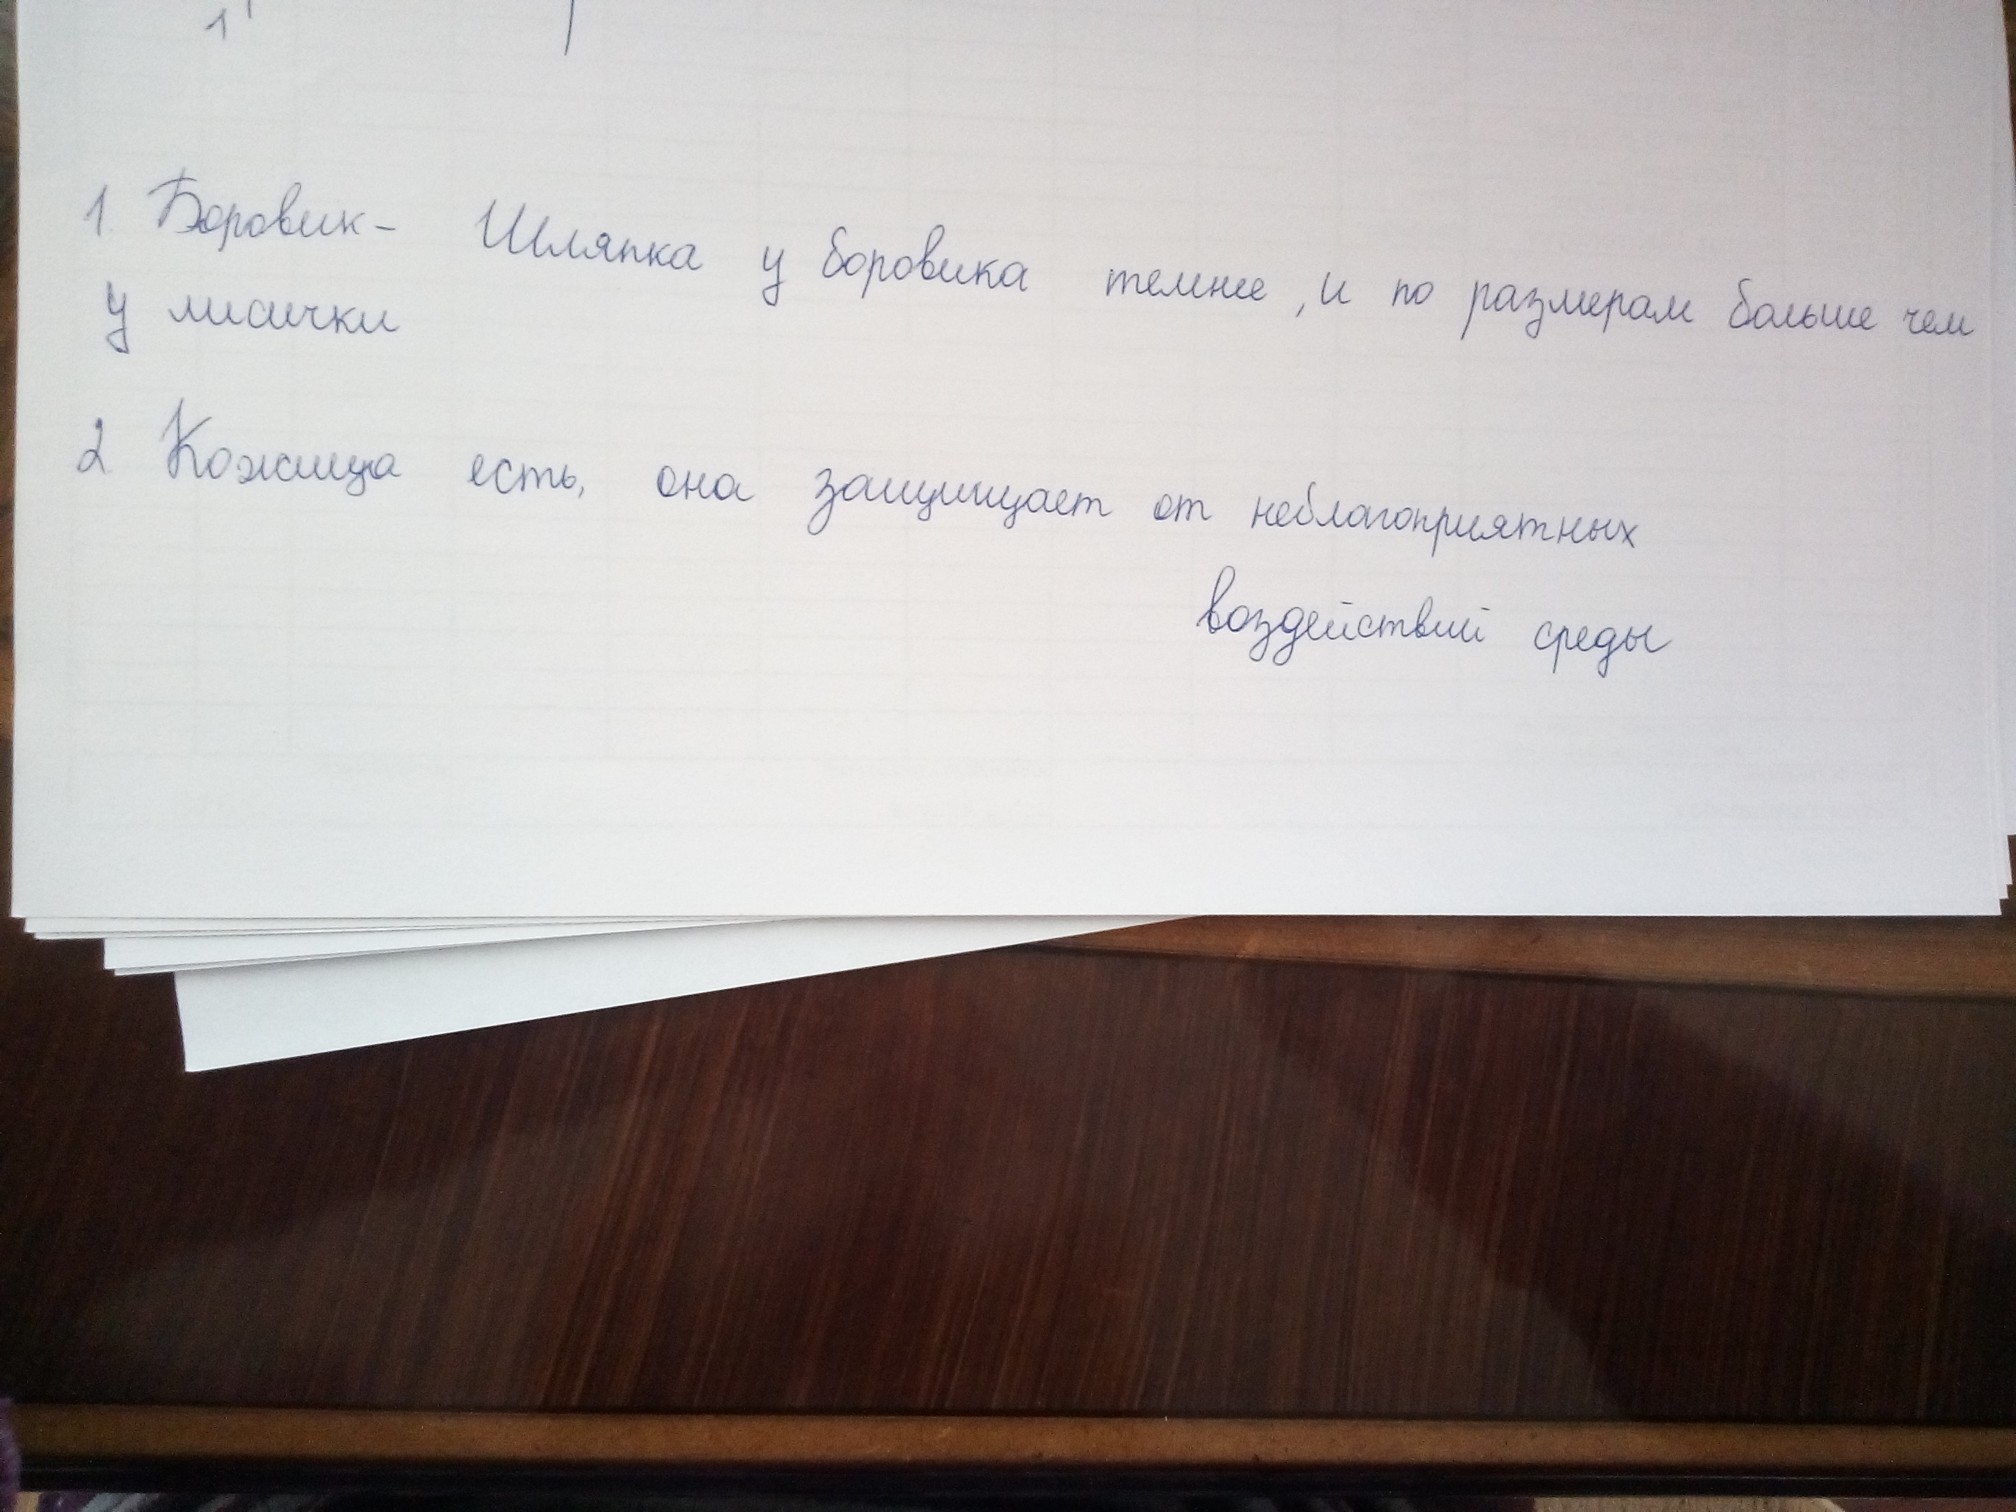 1. Боровик - Шляпка у боровика темнее, и по размерам больше чем
у лисички
2 Кожица есть, она защищает от неблагоприятных
воздействий среды